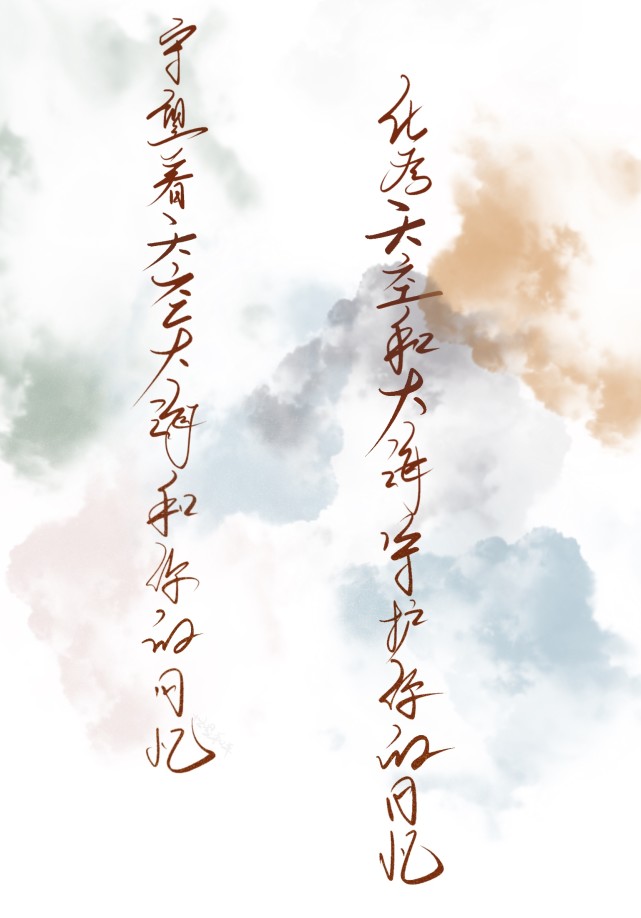 化为天空和大海守护你的回忆
守望着天空大海和你的回忆